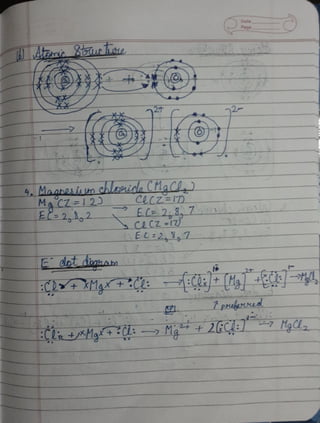 Date
Page
(b) Atomic Structure
2+ 2-
4. Magnesium chloride (MgCl2)
Mg (Z=12) Cl (Z=17)
EC = 2,8,2 → EC = 2,8,7
Cl (Z=17)
EC = 2,8,7
E- dot digram
:Cl x + xMgx + ·Cl: → [:Clx:]1- + [Mg]2+ + [:Cl:]1- → MgCl2
OR ? preferred
:Clx + xMgx + ·Cl: → Mg2+ + 2[:Cl:]1- → MgCl2